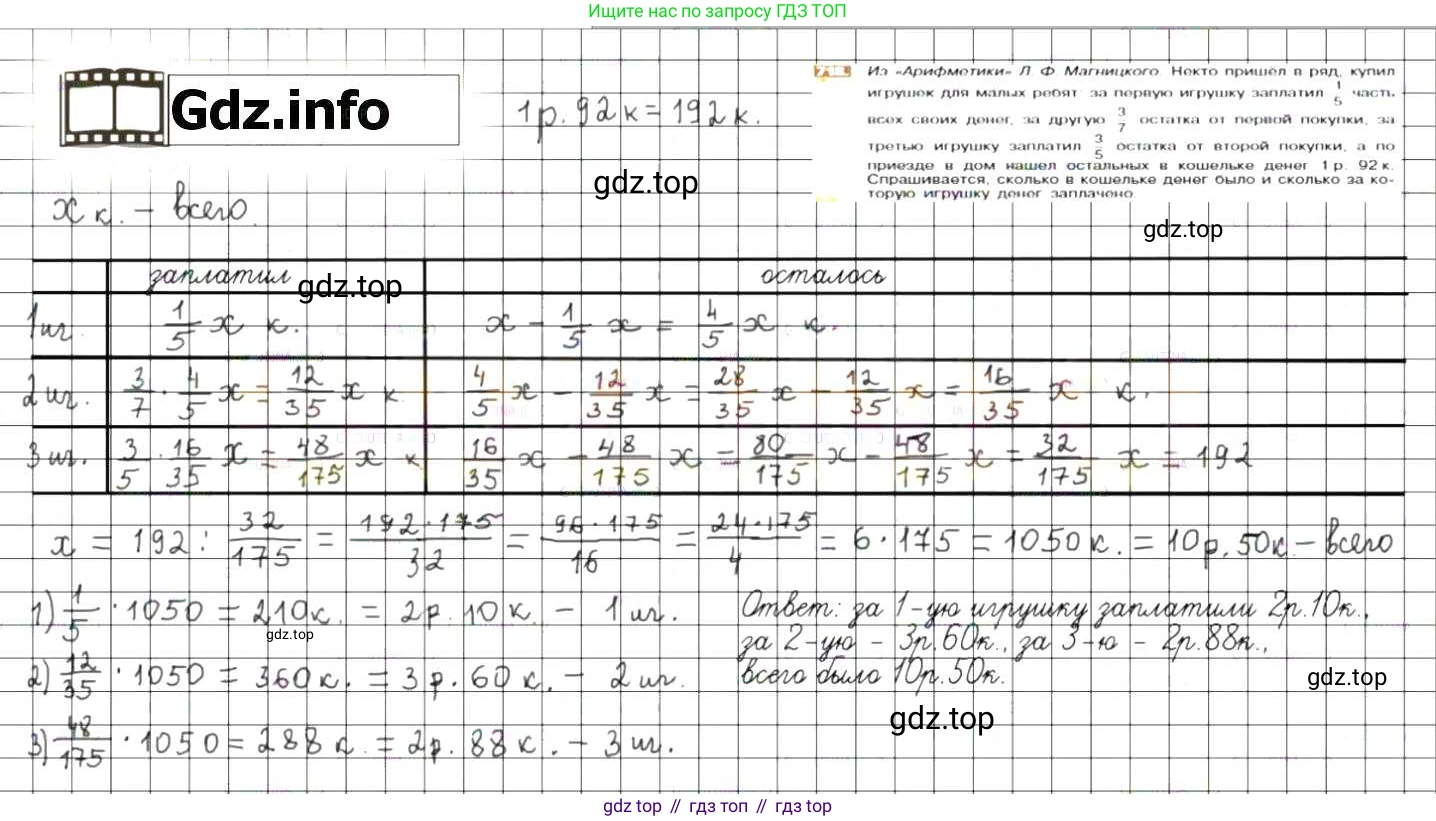 Ищите нас по запросу ГДЗ ТОП
Gdz.info
1 р. 92 к = 192 к.
718 Из «Арифметики» Л. Ф. Магницкого. Некто пришёл в ряд, купил
игрушек для малых ребят: за первую игрушку заплатил 1/5 часть
всех своих денег, за другую 3/7 остатка от первой покупки, за
третью игрушку заплатил 3/5 остатка от второй покупки, а по
приезде в дом нашел остальных в кошельке денег 1 р. 92 к.
Спрашивается, сколько в кошельке денег было и сколько за ко-
торую игрушку денег заплачено.
gdz.top
x к. – всего.
gdz.top
заплатил осталось
gdz.top
1 иг. 1/5 x к. x – 1/5 x = 4/5 x к.
2 иг. 3/7 · 4/5 x = 12/35 x к 4/5 x – 12/35 x = 28/35 x – 12/35 x = 16/35 x к.
3 иг. 3/5 · 16/35 x = 48/175 x к 16/35 x – 48/175 x = 80/175 x – 48/175 x = 32/175 x = 192
x = 192 : 32/175 = 192·175/32 = 96·175/16 = 24·175/4 = 6·175 = 1050 к. = 10 р. 50 к – всего
1) 1/5 · 1050 = 210 к. = 2 р. 10 к. – 1 иг.
gdz.top
2) 12/35 · 1050 = 360 к. = 3 р. 60 к. – 2 иг.
3) 48/175 · 1050 = 288 к. = 2 р. 88 к. – 3 иг.
Ответ: за 1-ую игрушку заплатили 2р. 10к.,
за 2-ую – 3р. 60к., за 3-ю – 2р. 88к.,
всего было 10р. 50к.
gdz.top
gdz.top
gdz top // гдз топ // gdz.top